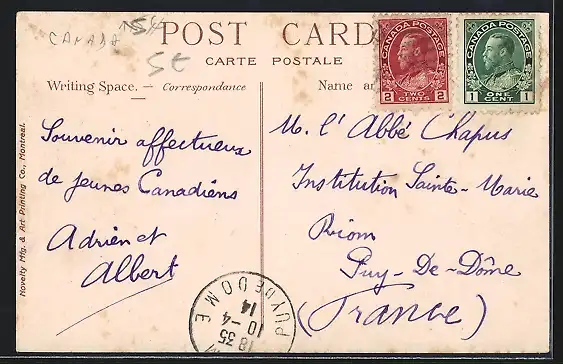 CANADA
POST CARD
CARTE POSTALE
Writing Space. — Correspondance
Name
CANADA POSTAGE
2 TWO CENTS 2
CANADA POSTAGE
1 ONE CENT 1
Souvenir affectueux
de jeunes Canadiens
Adrien et
Albert
M. l'Abbé Chapus
Institution Sainte-Marie
Riom
Puy-De-Dôme
(France)
PUY DE DOME
18 35
10-4
14
Novelty Mfg. & Art Printing Co., Montreal.